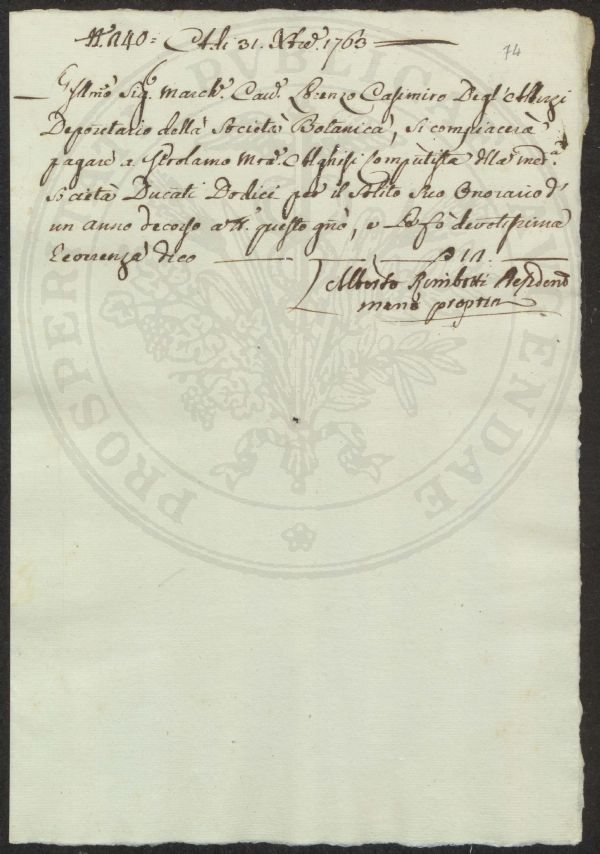 N.° 140 = A di 31. Xbre. 1763
74
Illmo Sig.r March.e Cav.e Lorenzo Casimiro Degl' Albizi
Depositario della Società Botanica, si compiacerà
pagare a Girolamo Alghisi Computista della med.a
Società Ducati Dodici per il Solito Suo Onorario d'
un anno decorso a tt.o questo gño, e Le fò devotissima
Reverenza dico
12.
Alberto Rimbotti Presiden.
mano propria
PROSPERITATI PUBLICAE AUGENDAE